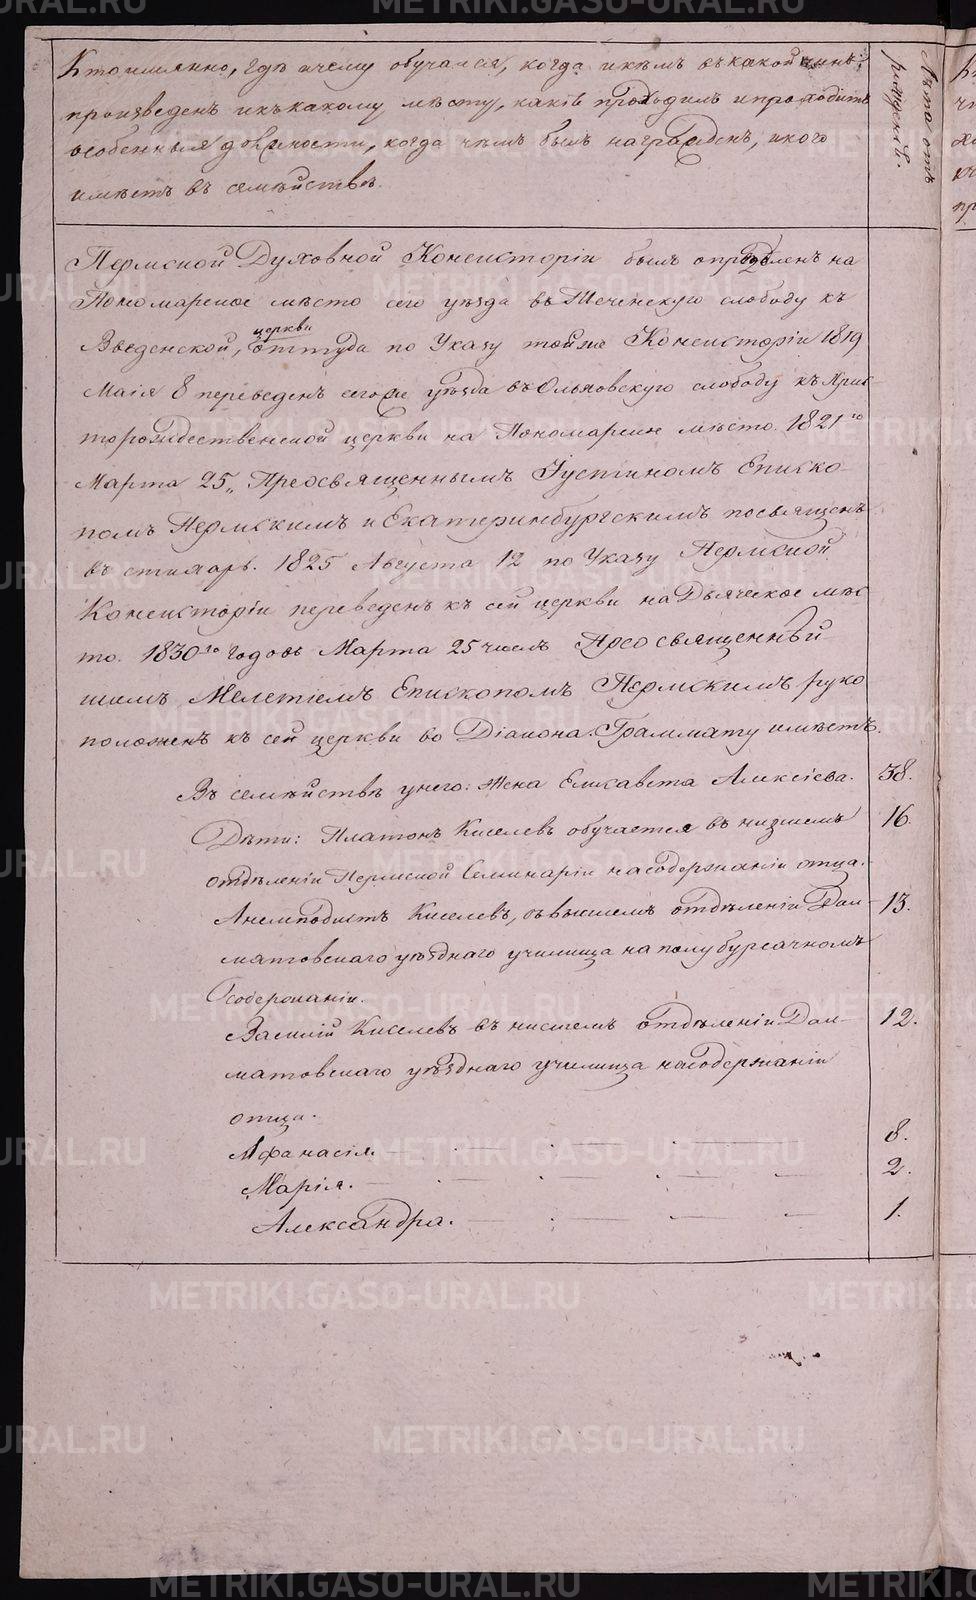 Кто именно, гдѣ и чему обучался, когда и кѣмъ въ какой чинъ
произведенъ и къ какому мѣсту, какiе проходилъ и проходитъ
особенныя должности, когда чѣмъ былъ награжденъ, и кого
имѣетъ въ семѣйствѣ.
Лѣта отъ
рожденiя.
Пермской Духовной Консисторiи былъ опредѣленъ на
Пономарское мѣсто сего уѣзда въ Теченскую слободу къ
Введенской, церкви оттуда по Указу тойже Консисторiи 1819
Маiя 8 переведенъ сегоже уѣзда въ Ольховскую слободу къ Хрис
торождественской церкви на Пономарское мѣсто. 1821го
Марта 25„ Преосвященнымъ Iустiномъ Еписко-
помъ Пермскимъ и Екатеринбургскимъ посвященъ
въ стихарь. 1825 Августа 12 по Указу Пермской
Консисторiи переведенъ къ сей церкви на Дьяческое мѣс
то. 1830го годовъ Марта 25 числъ Преосвященнѣй
шимъ Мелетiемъ Епископомъ Пермскимъ руко
положенъ къ сей церкви во Дiакона. Граммату имѣетъ.
Въ семѣйствѣ у него: Жена Елисавета Алексiева. 38.
Дѣти: Платонъ Киселевъ обучается въ низшемъ 16.
отдѣленiи Пермской Семинарiи на содержанiи отца.
Анемподистъ Киселевъ, въ высшемъ отдѣленiи Дал- 13.
матовскаго уѣзднаго училища на полубурсачномъ
содержанiи.
Василiй Киселевъ въ нисшемъ отдѣленiи Дал- 12.
матовскаго уѣзднаго училища на содержанiи
отца.
Афанасiя. 8.
Марiя. 2.
Александра. 1.
METRIKI.GASO-URAL.RU